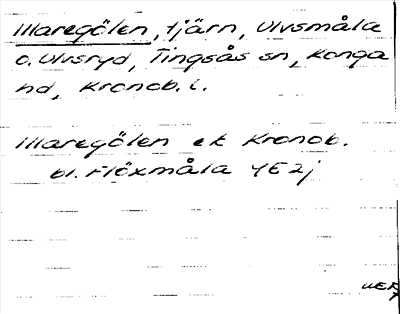 Illaregölen, tjärn, Ulvsmåla
o. Ulvsryd, Tingsås sn, Konga
hd, Kronob. l.
Illaregölen ek Kronob.
bl. Flöxmåla 4E2j